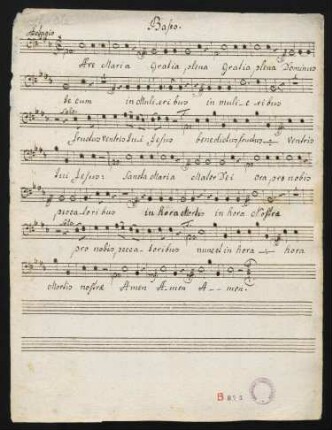 Basso.
Adagio
Ave Maria Gratia, plena Gratia, plena Dominus
te cum in Mulieribus in muli-e-ribus
Solo
fructus ventris tui Jesus benedictus fructus ventris
tui Jesus: Sancta Maria Mater Dei Ora, pro nobis
pecca-toribus in hora Mortis in hora Nostræ
pro nobis, pecca-toribus nunc et in hora hora
Mortis nostræ Amen A-men A--men.
B